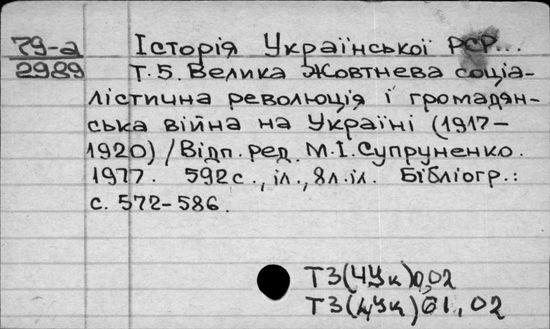 79-а Історія Української РСР...
2989 Т.5. Велика Жовтнева соціа-
лістична революція і громадян-
ська війна на Україні (1917-
1920) / Відп. ред. М.І. Супруненко.
1977. 592с., іл., 8л.іл. Бібліогр.:
с. 572-586.
Т3(4Ук)0,02
Т3(4Ук)61,02